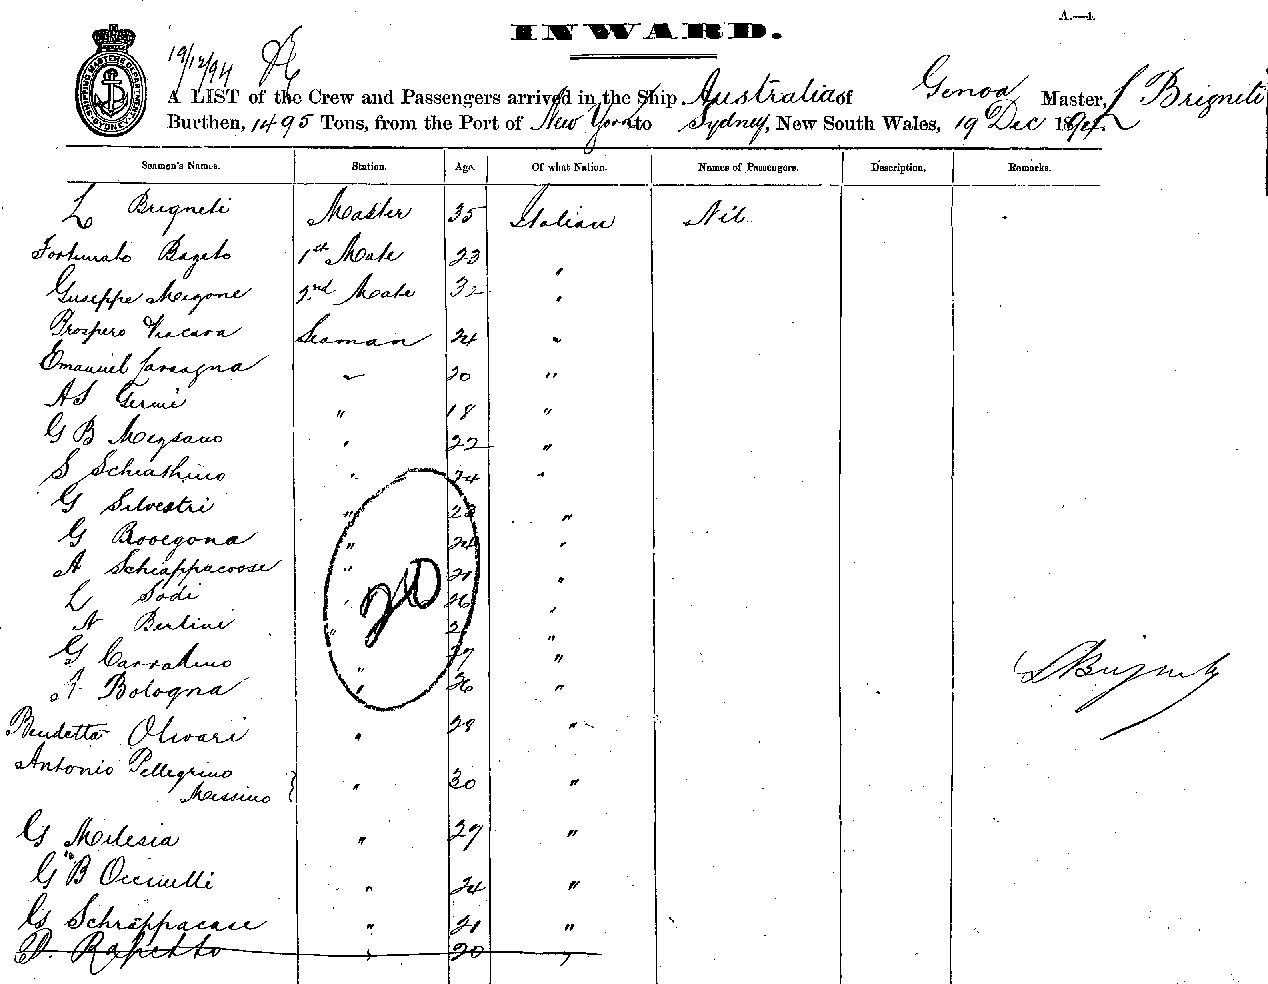 A.—4.
INWARD.
19/12/94
SHIPPING MASTERS DEPARTMENT SYDNEY
A LIST of the Crew and Passengers arrived in the Ship Australia of Genoa Master, L Brigneti
Burthen, 1495 Tons, from the Port of New York to Sydney, New South Wales, 19 Dec 1894.
Seamen's Names. Station. Age. Of what Nation. Names of Passengers. Description. Remarks.
L Brigneti Master 35 Italian Nil
Fortunato Bozeto 1st Mate 22 "
Guseppe Megone 2nd Mate 32 "
Prospero Viacava Seaman 24 "
Emanuel Lavsagna " 20 "
AS Germi " 18 "
G B Megsano " 22 "
S Schiathino " 24 "
G Silvestri " "
G Bovegona " 24 "
A Schiappacoose " 21 "
L Sodi " 26 "
N Bertini " "
G Carrahino " 27 "
A Bologna " 26 "
20
L Brigneti
Bendetta Olivari " 28 "
Antonio Pellegrino
Messino } " 30 "
G Milesia " 27 "
G B Occinelli " 24 "
G Schrappacase " 21 "
D. Rapetto " 20 "